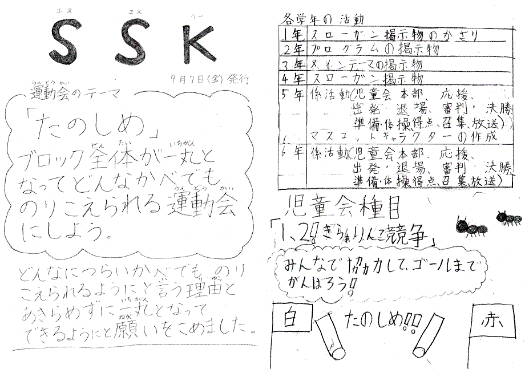 エス エス ケー
SSK
9月7日(金)発行
運動会のテーマ
「たのしめ」
ブロック全体が一丸と
なってどんなかべでも
のりこえられる運動会
にしよう。
どんなにつらいかべでも のり
こえられるようにと言う理由と
あきらめずに一丸となって
できるようにと願いをこめました。
各学年の活動
1年 スローガン掲示物のかざり
2年 プログラムの掲示物
3年 メインテーマの掲示物
4年 スローガン掲示物
5年 係活動(児童会本部、応援、
出発・退場、審判・決勝
準備・体操、得点、召集、放送)
マスコットキャラクターの作成
6年 係活動(児童会本部、応援、
出発・退場、審判・決勝
準備・体操、得点、召集、放送)
児童会種目
「1、2!!ぎらぁりんこ競争」
みんなで協力して、ゴールまで
がんばろう!!
白
たのしめ!!
赤